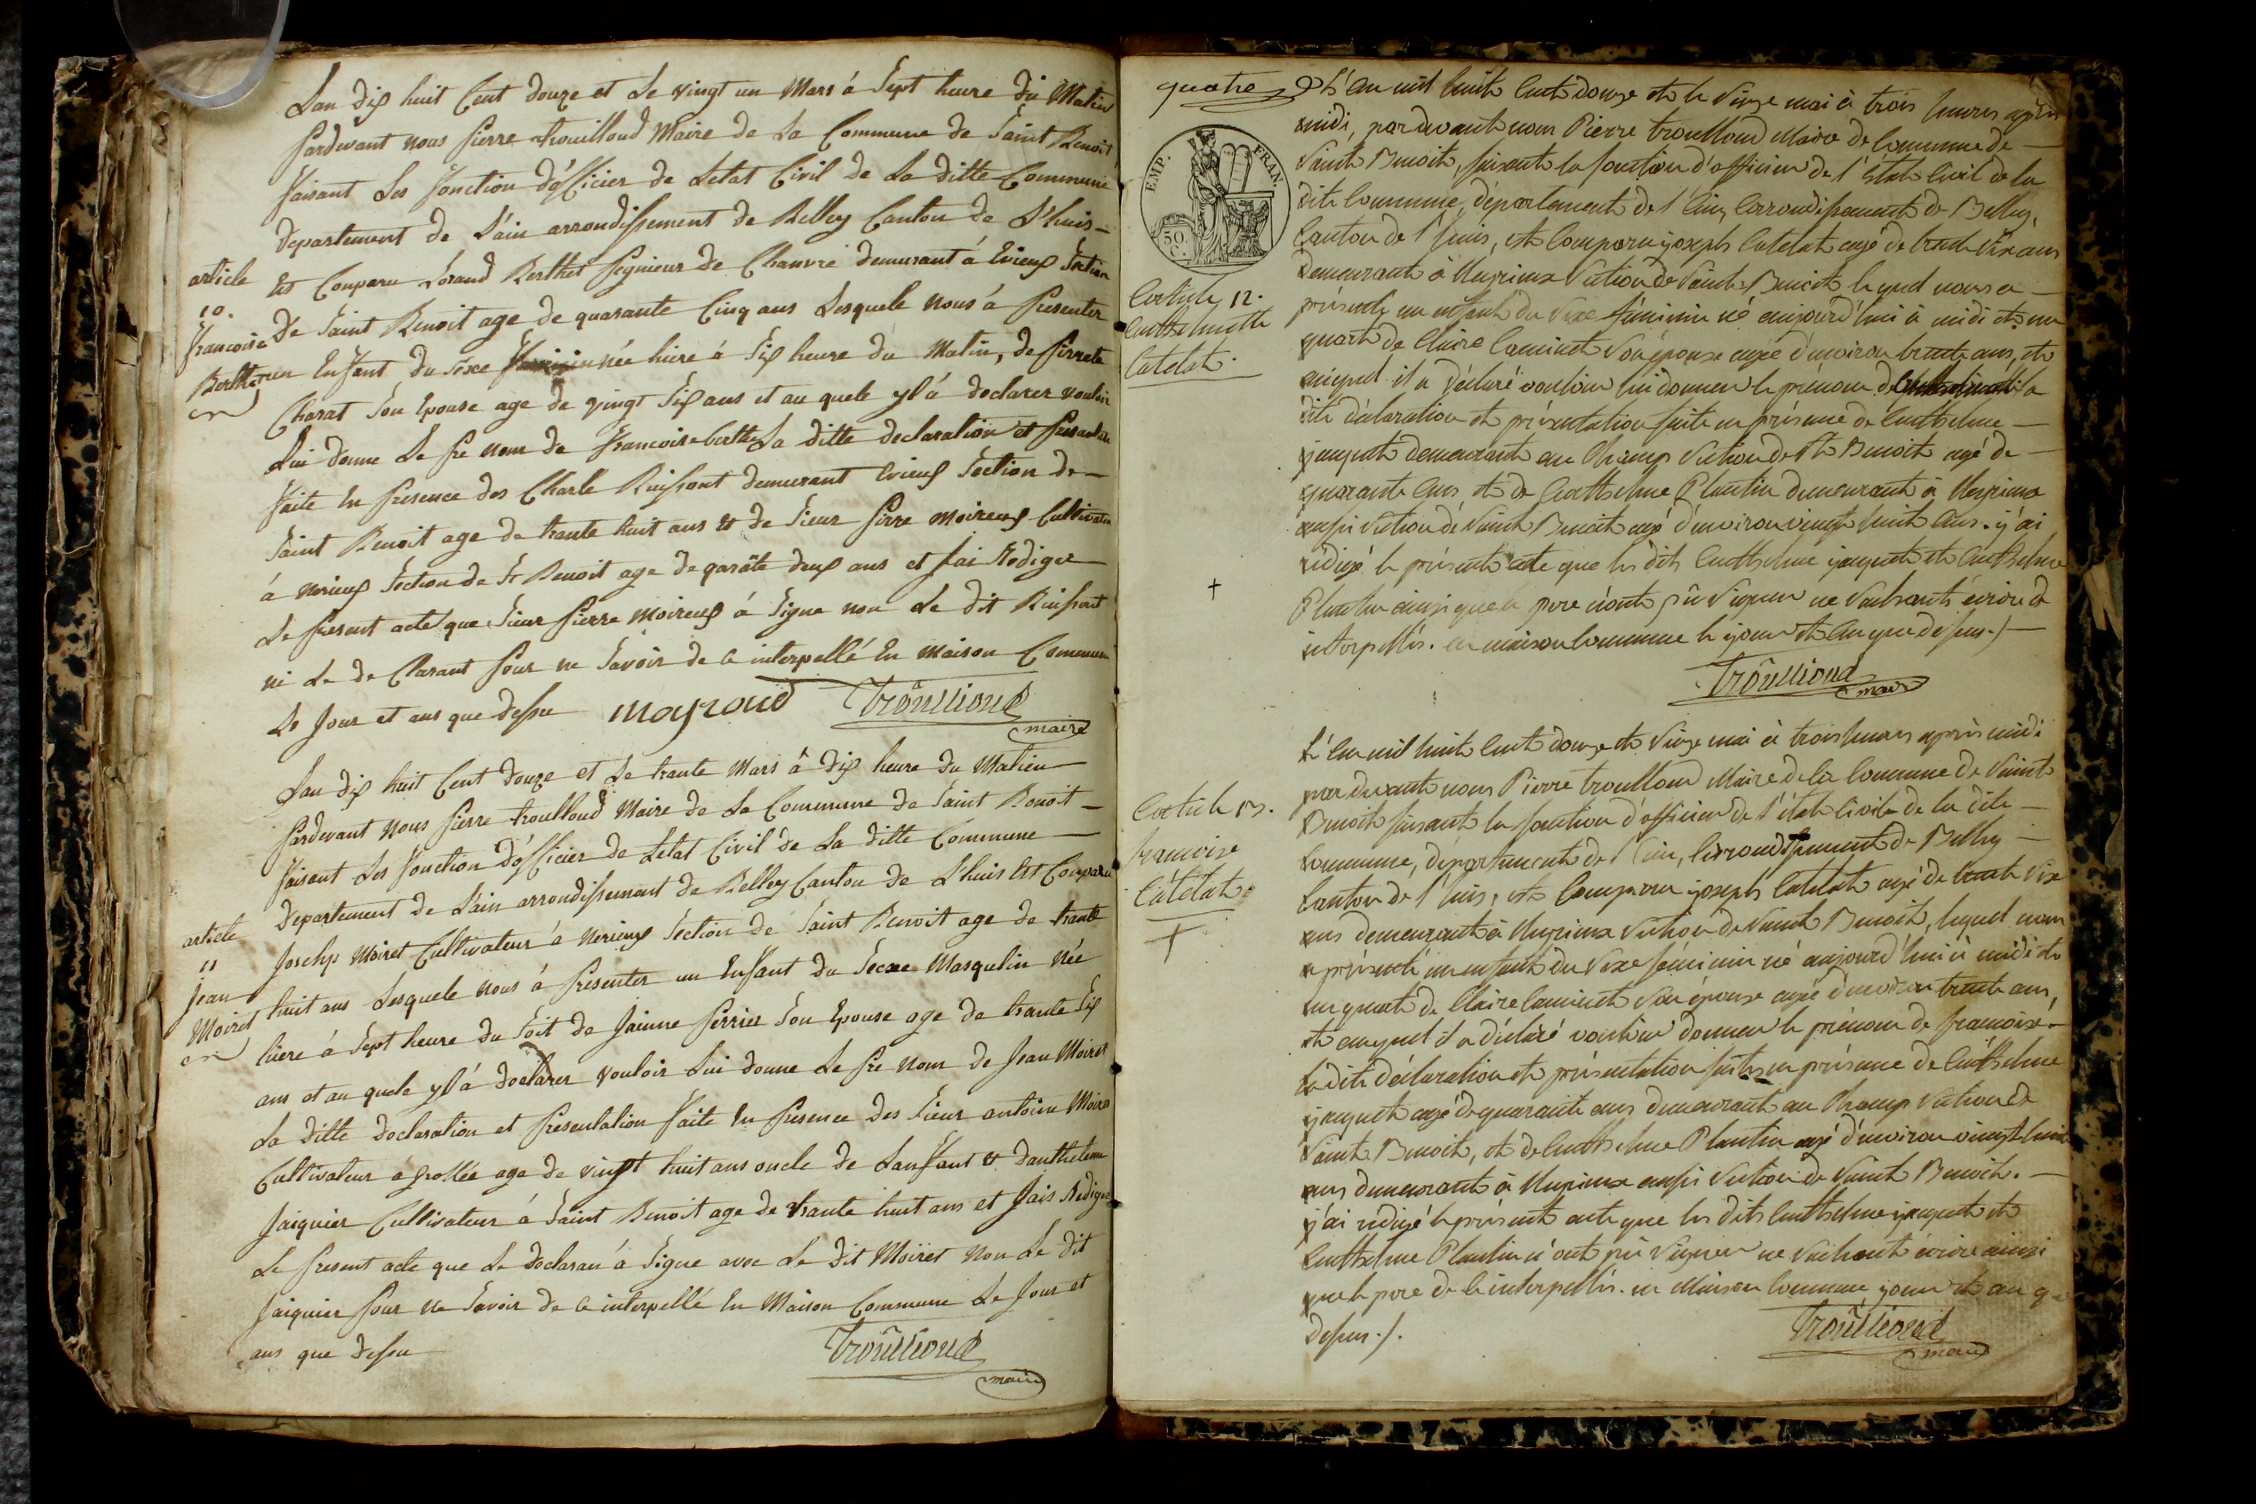 Lan dix huit Cent douze et Le vingt un Mars á Sept heure du Matin
Pardevant nous Pierre trouilloud Maire de La Commune de Saint Benoit
faisant Les fonction d'officier de Letat Civil de La ditte Commune
Departement de L'ain arrondissement de Belley Canton de L'huis
article
Est Comparu Berthet de demeurant á Evieux Section
10.
De Saint Benoit age de quarante Cinq ans Lesquele nous á presenter
francoise
Berthet
un Enfant du Sexe née hiere á Six heure du Matin, de pierrete
Charat Son Epouse age de vingt Six ans et au quele yl á declarer vouloir
Lui donne Le pre nom de francoise berthet La ditte declaration et
faite En presence des Charle demeurant Evieux Section de
Saint Benoit age de trante huit ans et de Sieur pierre Moireux Cultivateur
á Section de St Benoit age de deux ans et Jai Redigee
Le present acte que Sieur pierre Moireux á Signe non Le dit
ni Le de Clarant pour ne Savoir de Ce interpellé En Maison Commune
Le Jour et ans que dessu mayraud Trôullioud
maire
Lan dix huit Cent douze et Le trante Mars á dix heure du Matin
Pardevant Nous pierre troulloud Maire de La Commune de Saint Benoit
faisant Les fonction d'officier de Letat Civil de La ditte Commune
Departement de L'ain arrondissement de Belley Canton de L'huis Est Comparu
article
Joseph Moiret Cultivateur á Section de Saint Benoit age de trante
11
Jean
huit ans Lesquele nous á presenter un Enfant du Sexe Masqulin née
Moiret
hiere á Sept heure du Soit de perrier Son Epouse age de trante Six
ans et au quele yl á declarer vouloir Lui donne Le pre nom de Jean Moiret
La ditte declaration et presentation faite En presence des Sieur antoine Moiret
Cultivateur a grollée age de vingt huit ans oncle de Lanfant et
Jaiquier Cultivateur á Saint Benoit age de trante huit ans et Jais Redigee
Le present acte que Le declaran á Signe avec Le dit Moiret non Le dit
Jaiquier pour ne Savoir de Ce interpellé En Maison Commune Le Jour et
ans que dessu Trôullioud
maire
quatre
L'an mil huit cent douze et le seize mai à trois heures après
midi, pardevant nous Pierre troulloud Maire de commune de
EMP. FRAN.
Saint Benoit, faisant la fonction d'officier de l'Etat civil de la
dite commune, département de l'ain, arrondissement de Belley,
50. C.
canton de l'huis, est comparu joseph Catelat agé de trente six ans
demeurant à section de Saint Benoit lequel nous a
article 12.
présenté un enfant du sexe féminin né aujourd'hui à midi et un
Anthelmette
quart de Claire son épouse agée d'environ trente ans, et
Catelat.
auquel il a déclaré vouloir lui donner le prénom la
dite déclaration et présentation faite en présence de Anthelme
jaquet demeurant au Champ section de St Benoit agé de
quarante ans et de Anthelme Plantin demeurant à
aussi section de Saint Benoit agé d'environ vingt huit ans. j'ai
rédigé le présent acte que les dits Anthelme jaquet et Anthelme
Plantin ainsi que le pere n'ont pû signer ne sachants écrire de
interpellés. en maison commune le jour et an que dessus./.
Trôullioud
maire
L'an mil huit cent douze et seize mai à trois heures après midi
par devant nous Pierre troulloud Maire de la commune de Saint
article 13.
Benoit faisant la fonction d'officier de l'état civile de la dite
francoise
commune, département de l'ain, arrondissement de Belley
Catelat
canton de l'huis, est comparu joseph Catelat agé de trente six
ans demeurant à section de Saint Benoit, lequel nous
a présenté un enfant du sexe féminin né aujourd'hui à midi et
un quart de Claire son épouse agée d'environ trente ans,
et auquel il a déclaré vouloir donner le prénom de francoise
la dite déclaration et présentation faites en présence de Anthelme
jaquet agé de quarante ans demeurant au Champ section de
Saint Benoit, et de Anthelme Plantin agé d'environ vingt huit
ans demeurant à aussi section de Saint Benoit.
j'ai rédigé le présent acte que les dits Anthelme jaquet et
Anthelme Plantin n'ont pû signer ne sachant écrire ainsi
que le pere de ce interpellés. en Maison commune jour et an que
dessus./. Trôullioud
maire